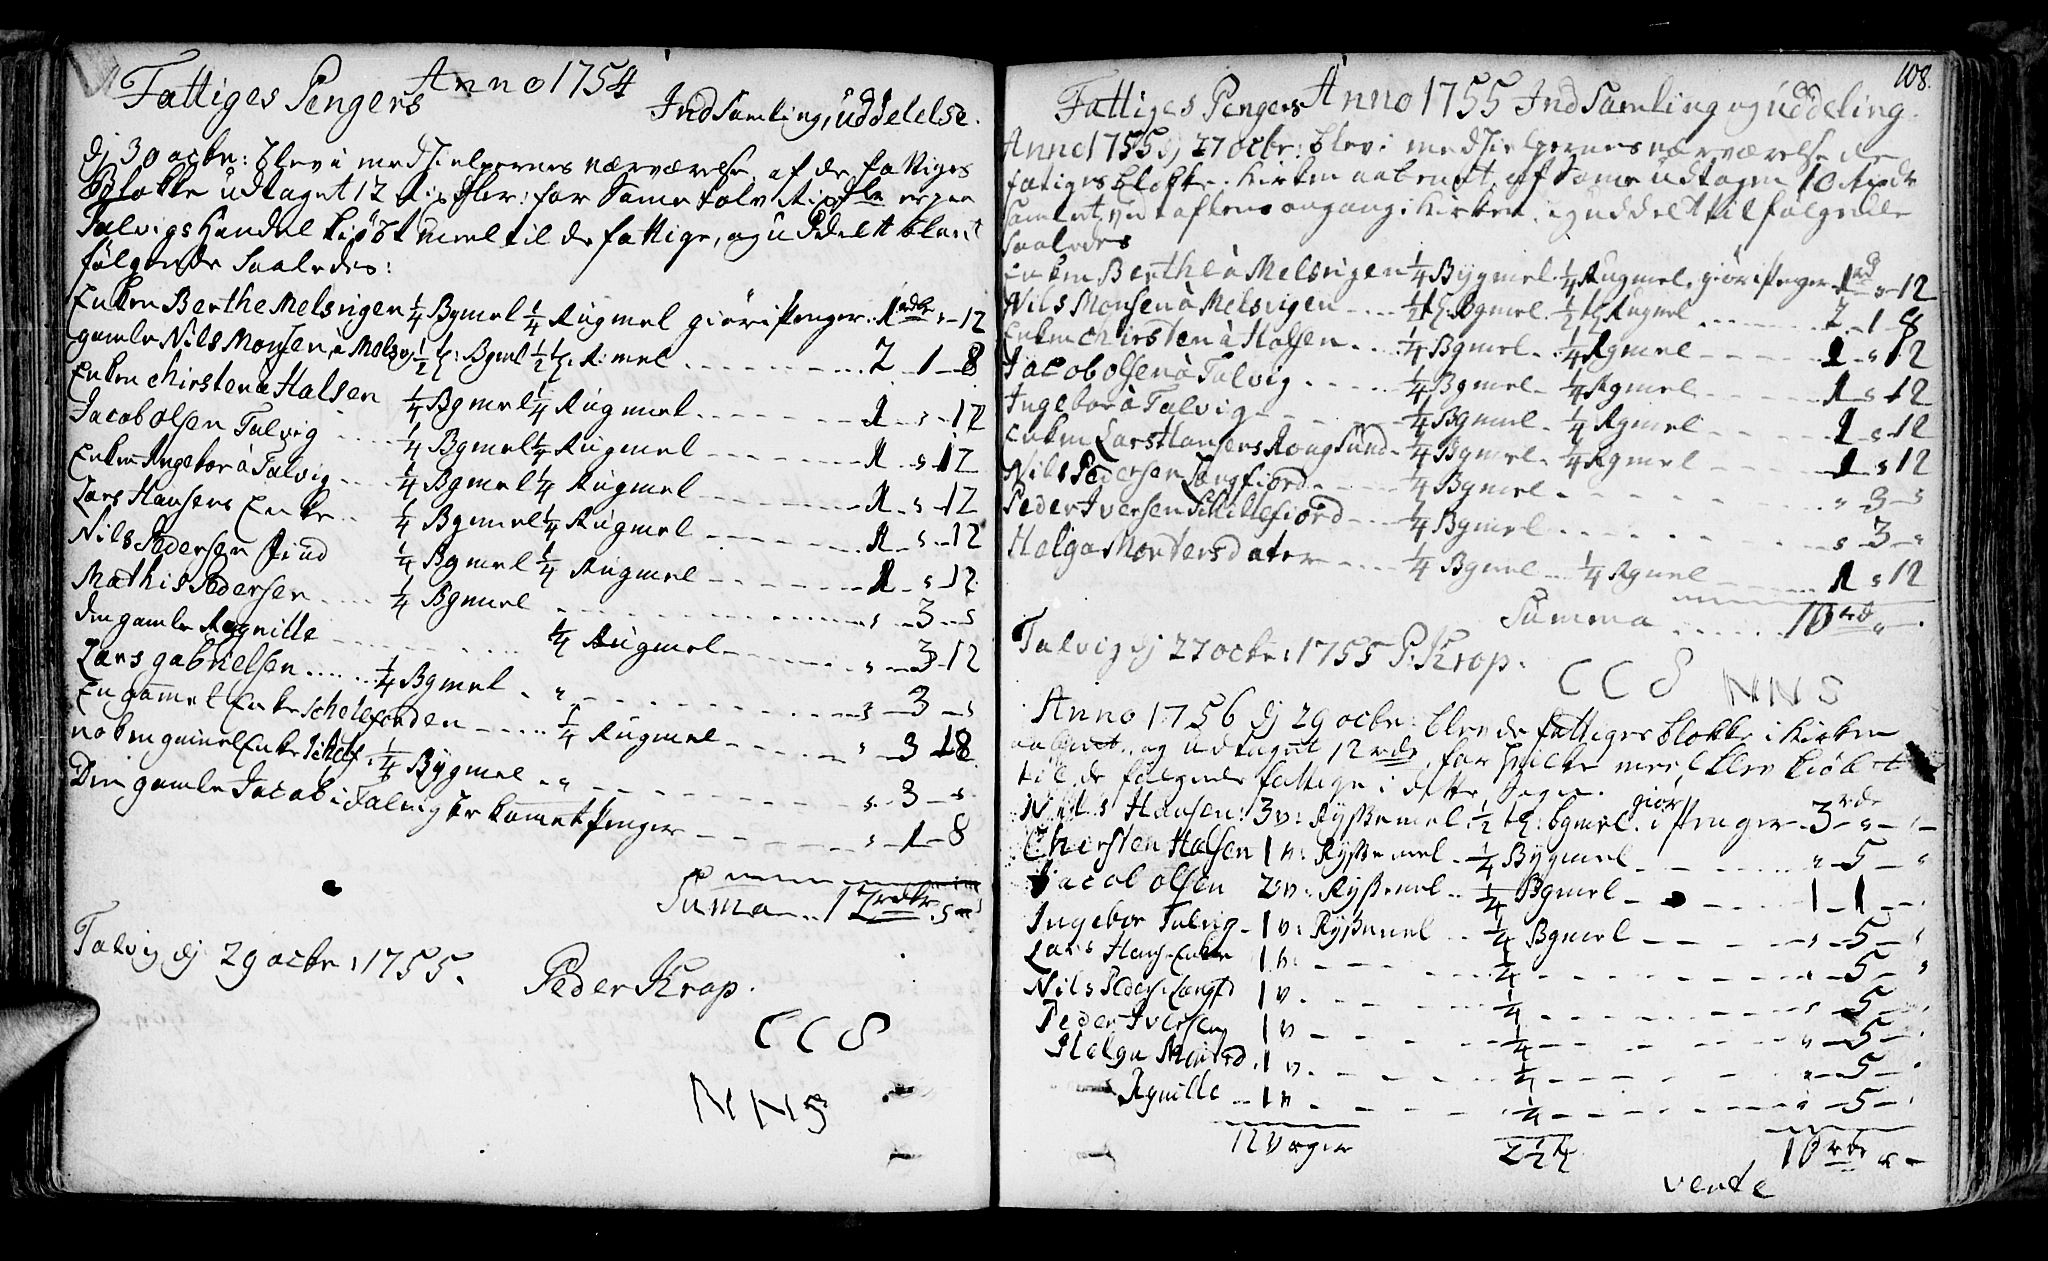 Anno 1754
Fattiges Pengers IndSamling, uddelelse.
dj 30 octbr: blev i medhielpernes nærværelse af de fattiges
Blokke udtaget 12 rixdler: for Same tolv rixdle er paa
Talvigs Handel kiøbt meel til de fattige, og uddelt blant
følgende saaledes:
Enken Berthe Melsvigen 1/4 Bygmel 1/4 Rugmel giør i Penger 1 rdlr " - 12
gamle Nils Monsen a Melsv 1/2 t: Bgmel 1/2 t: R:mel 2 - 1 - 8
Enken Chirsten a Halsen 1/4 Bgmel 1/4 Rugmel 1 - s - 12
Jacob olsen Talvig 1/4 Bgmel 1/4 Rugmel 1 - s 12
Enken Ingebor à Talvig 1/4 Bgmel 1/4 Rugmel 1 - s - 12
Lars Hansens Enke 1/4 Bgmel 1/4 Rugmel 1 - s - 12
Nils Pedersen 1/4 Bgmel 1/4 Rugmel 1 - s - 12
Mathis Pedersen 1/4 Bgmel s - 3 - s
den gamle Ragnille 1/4 Rugmel s - 3 - 12
Lars gabrielsen 1/4 Bgmel " s - 3 - s
En gammel Enke Schelefiorden 1/4 Rugmel " - 3 - 18
noken gamel Enke 1/4 Bygmel " s - 3 - s
Den gamle Jacob i Talvig bekomet Penger " - 1 - 8
Suma 12 rdlr
Talvig dj 29 octbr: 1755. Peder Krop.
CCS
NNS
108.
Fattiges Pengers Anno 1755 IndSamling og uddeling.
Anno 1755 dj 27 octbr: blev i medhielpernes nærværelse de
fatiges blokke i Kirken aabnet, af same udtagen 10 rixdr
samlet ved taflens omgang i Kirken, og uddelt til følgende
saaledes
Enken Berthe à Melsvigen 1/4 Bygmel 1/4 Rugmel, giør i Penger 1 rd s - 12
Nils Monsen à Melsvigen 1/2 t: Bgmel 1/2 t Rugmel 2 - 1 - 8
Enken Chirsten à Halsen 1/4 Bgmel 1/4 Rgmel 1 " 12
Jacob olsen à Talvig 1/4 Bgmel 1/4 Rgmel 1 s 12
Ingebor à Talvig 1/4 Bgmel 1/4 Rgmel 1 s 12
Enken Lars Hansens Rongsund 1/4 Bgmel 1/4 Rgmel 1 s 12
Nils Pedersen Langfiord 1/4 Bgmel " 3 - s
Peder Iversen Schillefiord 1/4 Bgmel s - 3 - "
Helga Mortensdater 1/4 Bgmel 1/4 Rgmel 1 s 12
Summa 10 rd "
Talvig dj 27 octbr: 1755 P: Krop.
CCS NNS
Anno 1756 dj 29 octbr: blev de fattiges blokke i Kirken
aabnet, og udtaget 12 rdr, for hvilke meel blev kiøbt
til de følgende fattige i dette Sogn.
Niels Hansen: 3 v: Ryssemel, 1/2 t: bgmel. giør i Penger 3 rdr " -
Chersten Halsen 1 v: Ryssemel 1/4 Bygmel " - 5 - "
Jacob olsen 2 v: Ryssemel 1/4 Bgmel 1 - 1 -
Ingebor Talvig 1 v: Ryssemel 1/4 Bgmel s - 5 - s
Lars Hans: Enke 1 v: 1/4 " - 5 - "
Nils Peders: Langfd 1 v 1/4 s - 5 -
Peder Iversen 1 v 1/4 " - 5 -
Helga Mortsd. 1 v 1/4 " - 5 -
Rgnille 1 v 1/4 " - 5 -
12 Voger 2 1/2 t 10 rdr " -
vende